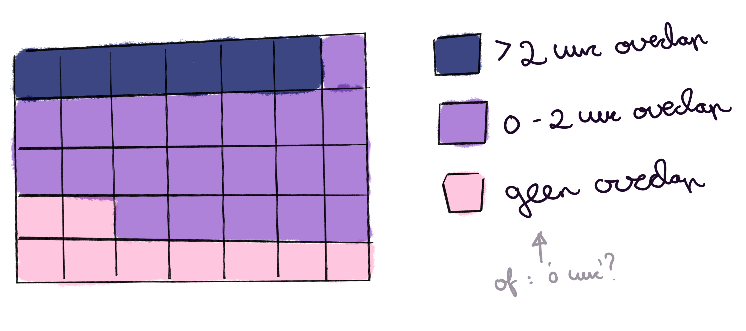 > 2 uur overlap
0 - 2 uur overlap
geen overlap
of : '0 uur'?